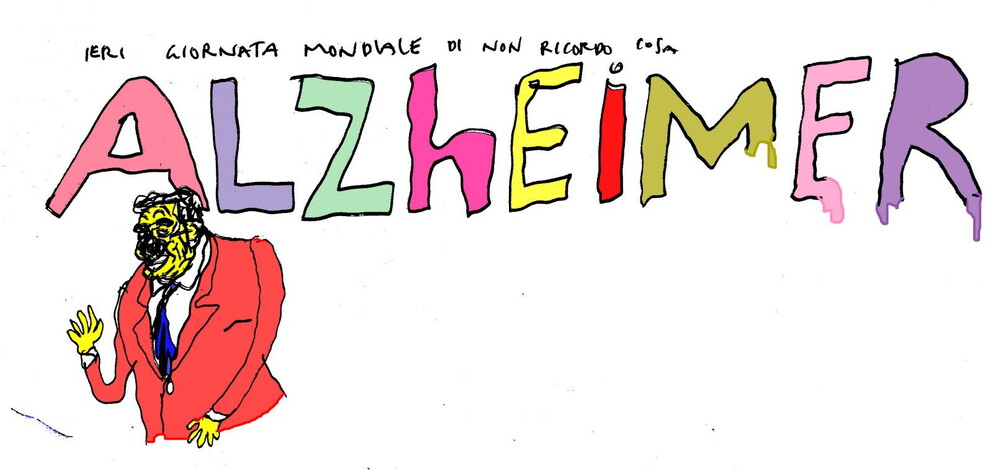 IERI GIORNATA MONDIALE DI NON RICORDO COSA
ALZhEiMER